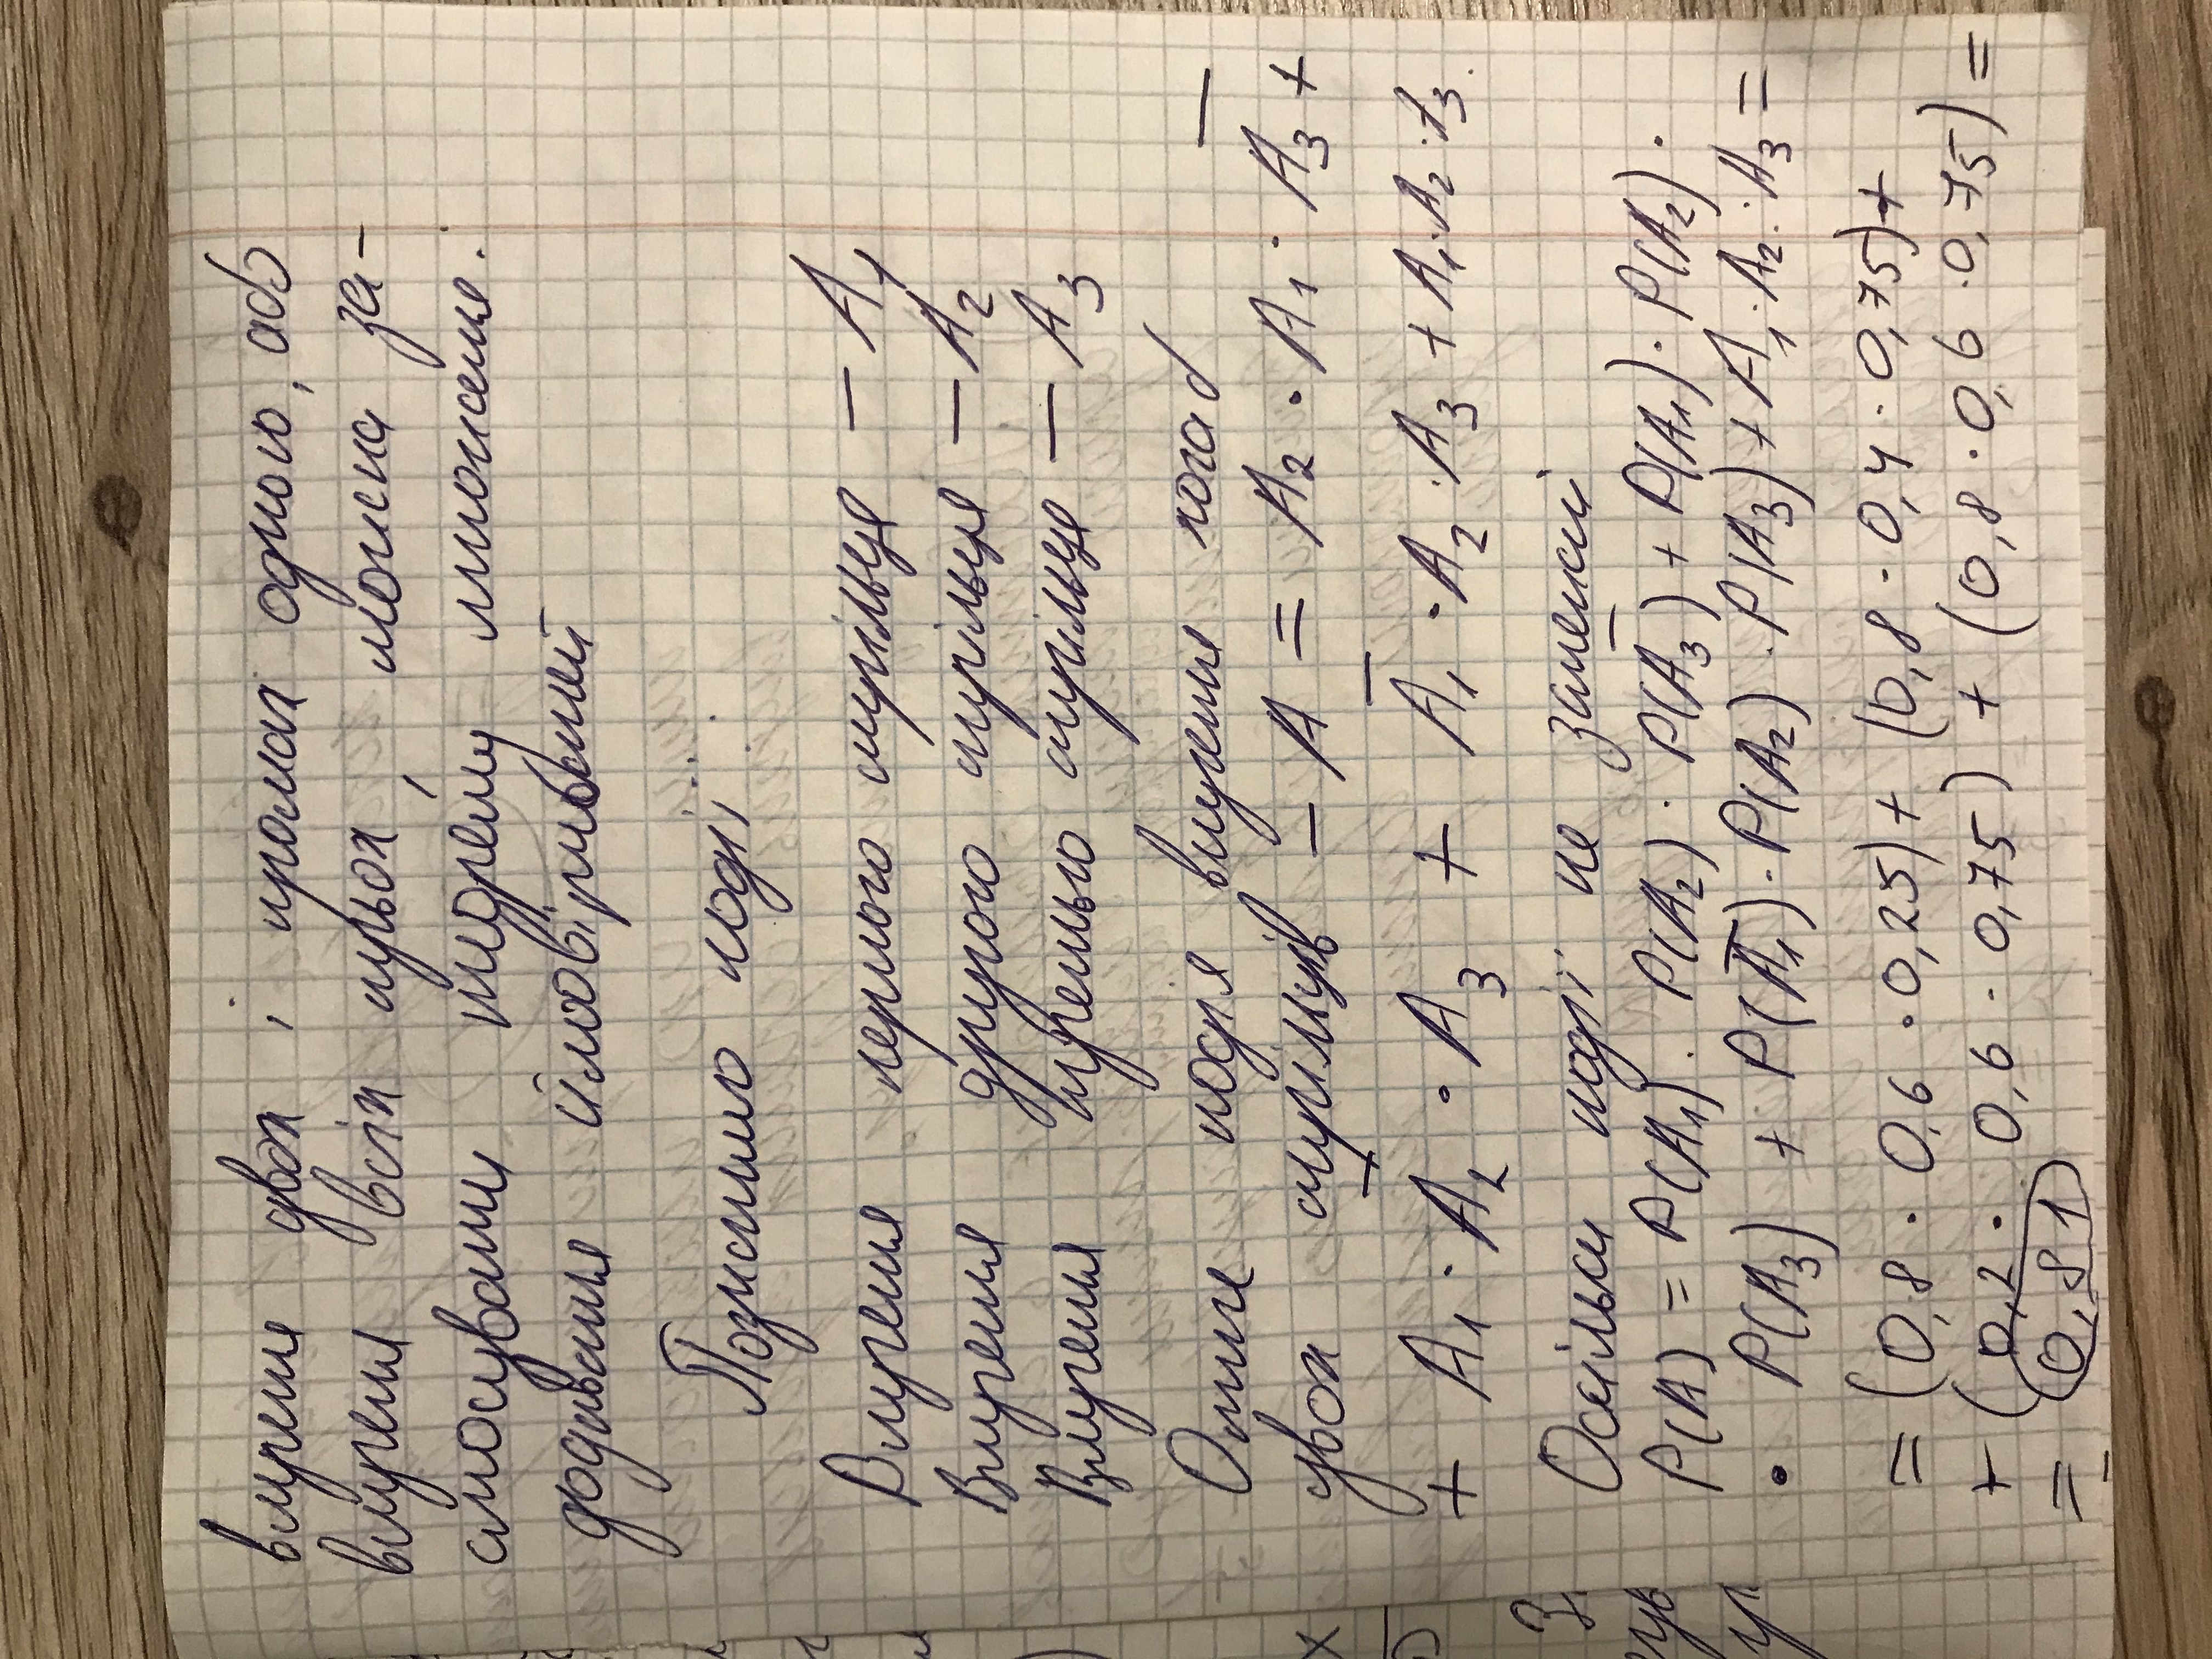 влучення двох і промах одного, або
влучення всіх трьох, можна за-
стосувати теорему множення.
додавання ймовірностей
Позначимо події:
Влучення першого стрільця – A₁
Влучення другого стрільця – A₂
Влучення третього стрільця – A₃
Отже подія влучення
двох стрільців – A = A₂ · A₁ · A̅₃ +
+ A₁ · A̅₂ · A₃ + A̅₁ · A₂ · A₃ + A₁ · A₂ · A₃.
Оскільки події не залежні
P(A) = P(A₁) · P(A₂) · P(A̅₃) + P(A₁) · P(A₂) ·
· P(A₃) + P(A̅₁) · P(A₂) · P(A₃) + A₁ · A₂ · A₃ =
= (0,8 · 0,6 · 0,25) + (0,8 · 0,4 · 0,75) +
+ (0,2 · 0,6 · 0,75) + (0,8 · 0,6 · 0,75) =
= 0,81